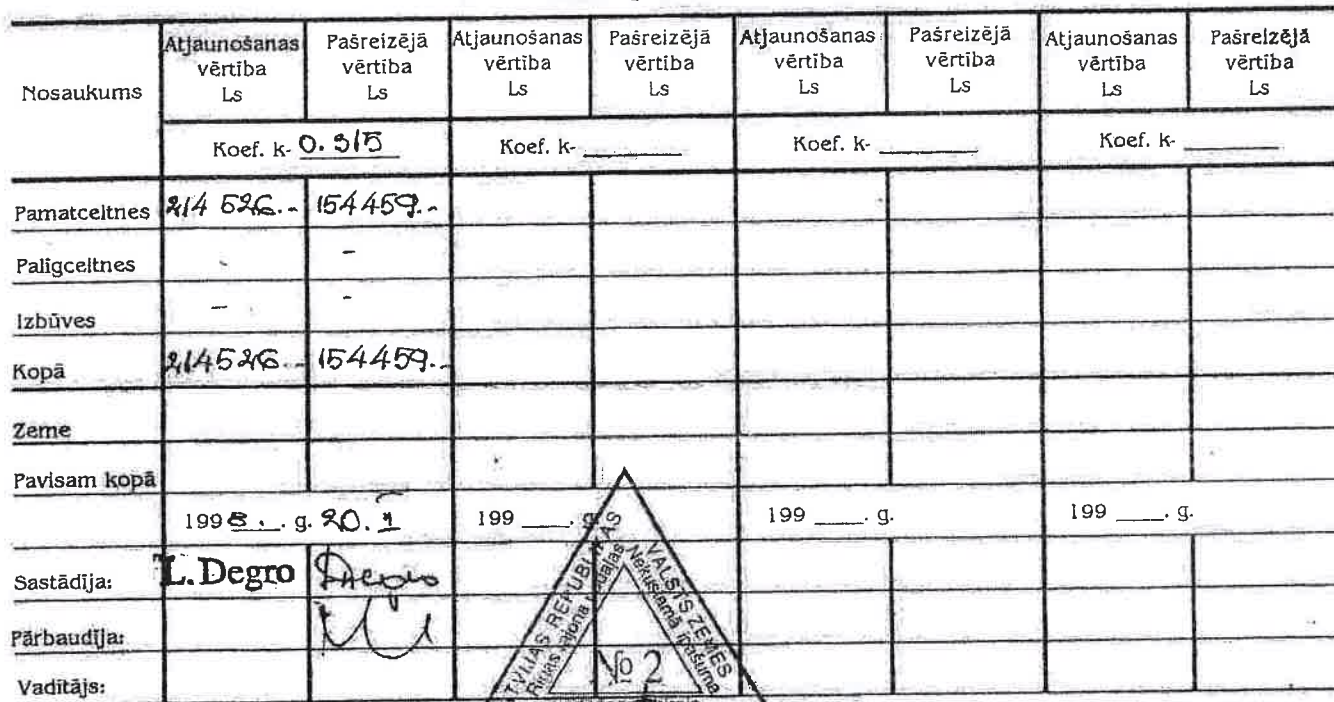 Nosaukums
Atjaunošanas vērtība Ls
Pašreizējā vērtība Ls
Atjaunošanas vērtība Ls
Pašreizējā vērtība Ls
Atjaunošanas vērtība Ls
Pašreizējā vērtība Ls
Atjaunošanas vērtība Ls
Pašreizējā vērtība Ls
Koef. k- 0.315 Koef. k- ____ Koef. k- ____ Koef. k- ____
Pamatceltnes 214 526.- 154459.-
Palīgceltnes - -
Izbūves - -
Kopā 214526.- 154459.-
Zeme
Pavisam kopā
1998. g. 20. I 199 ___. g. 199 ___. g. 199 ___. g.
Sastādīja: L. Degro
Pārbaudīja:
Vadītājs:
VALSTS ZEMES
Nekustamā īpašuma
№ 2